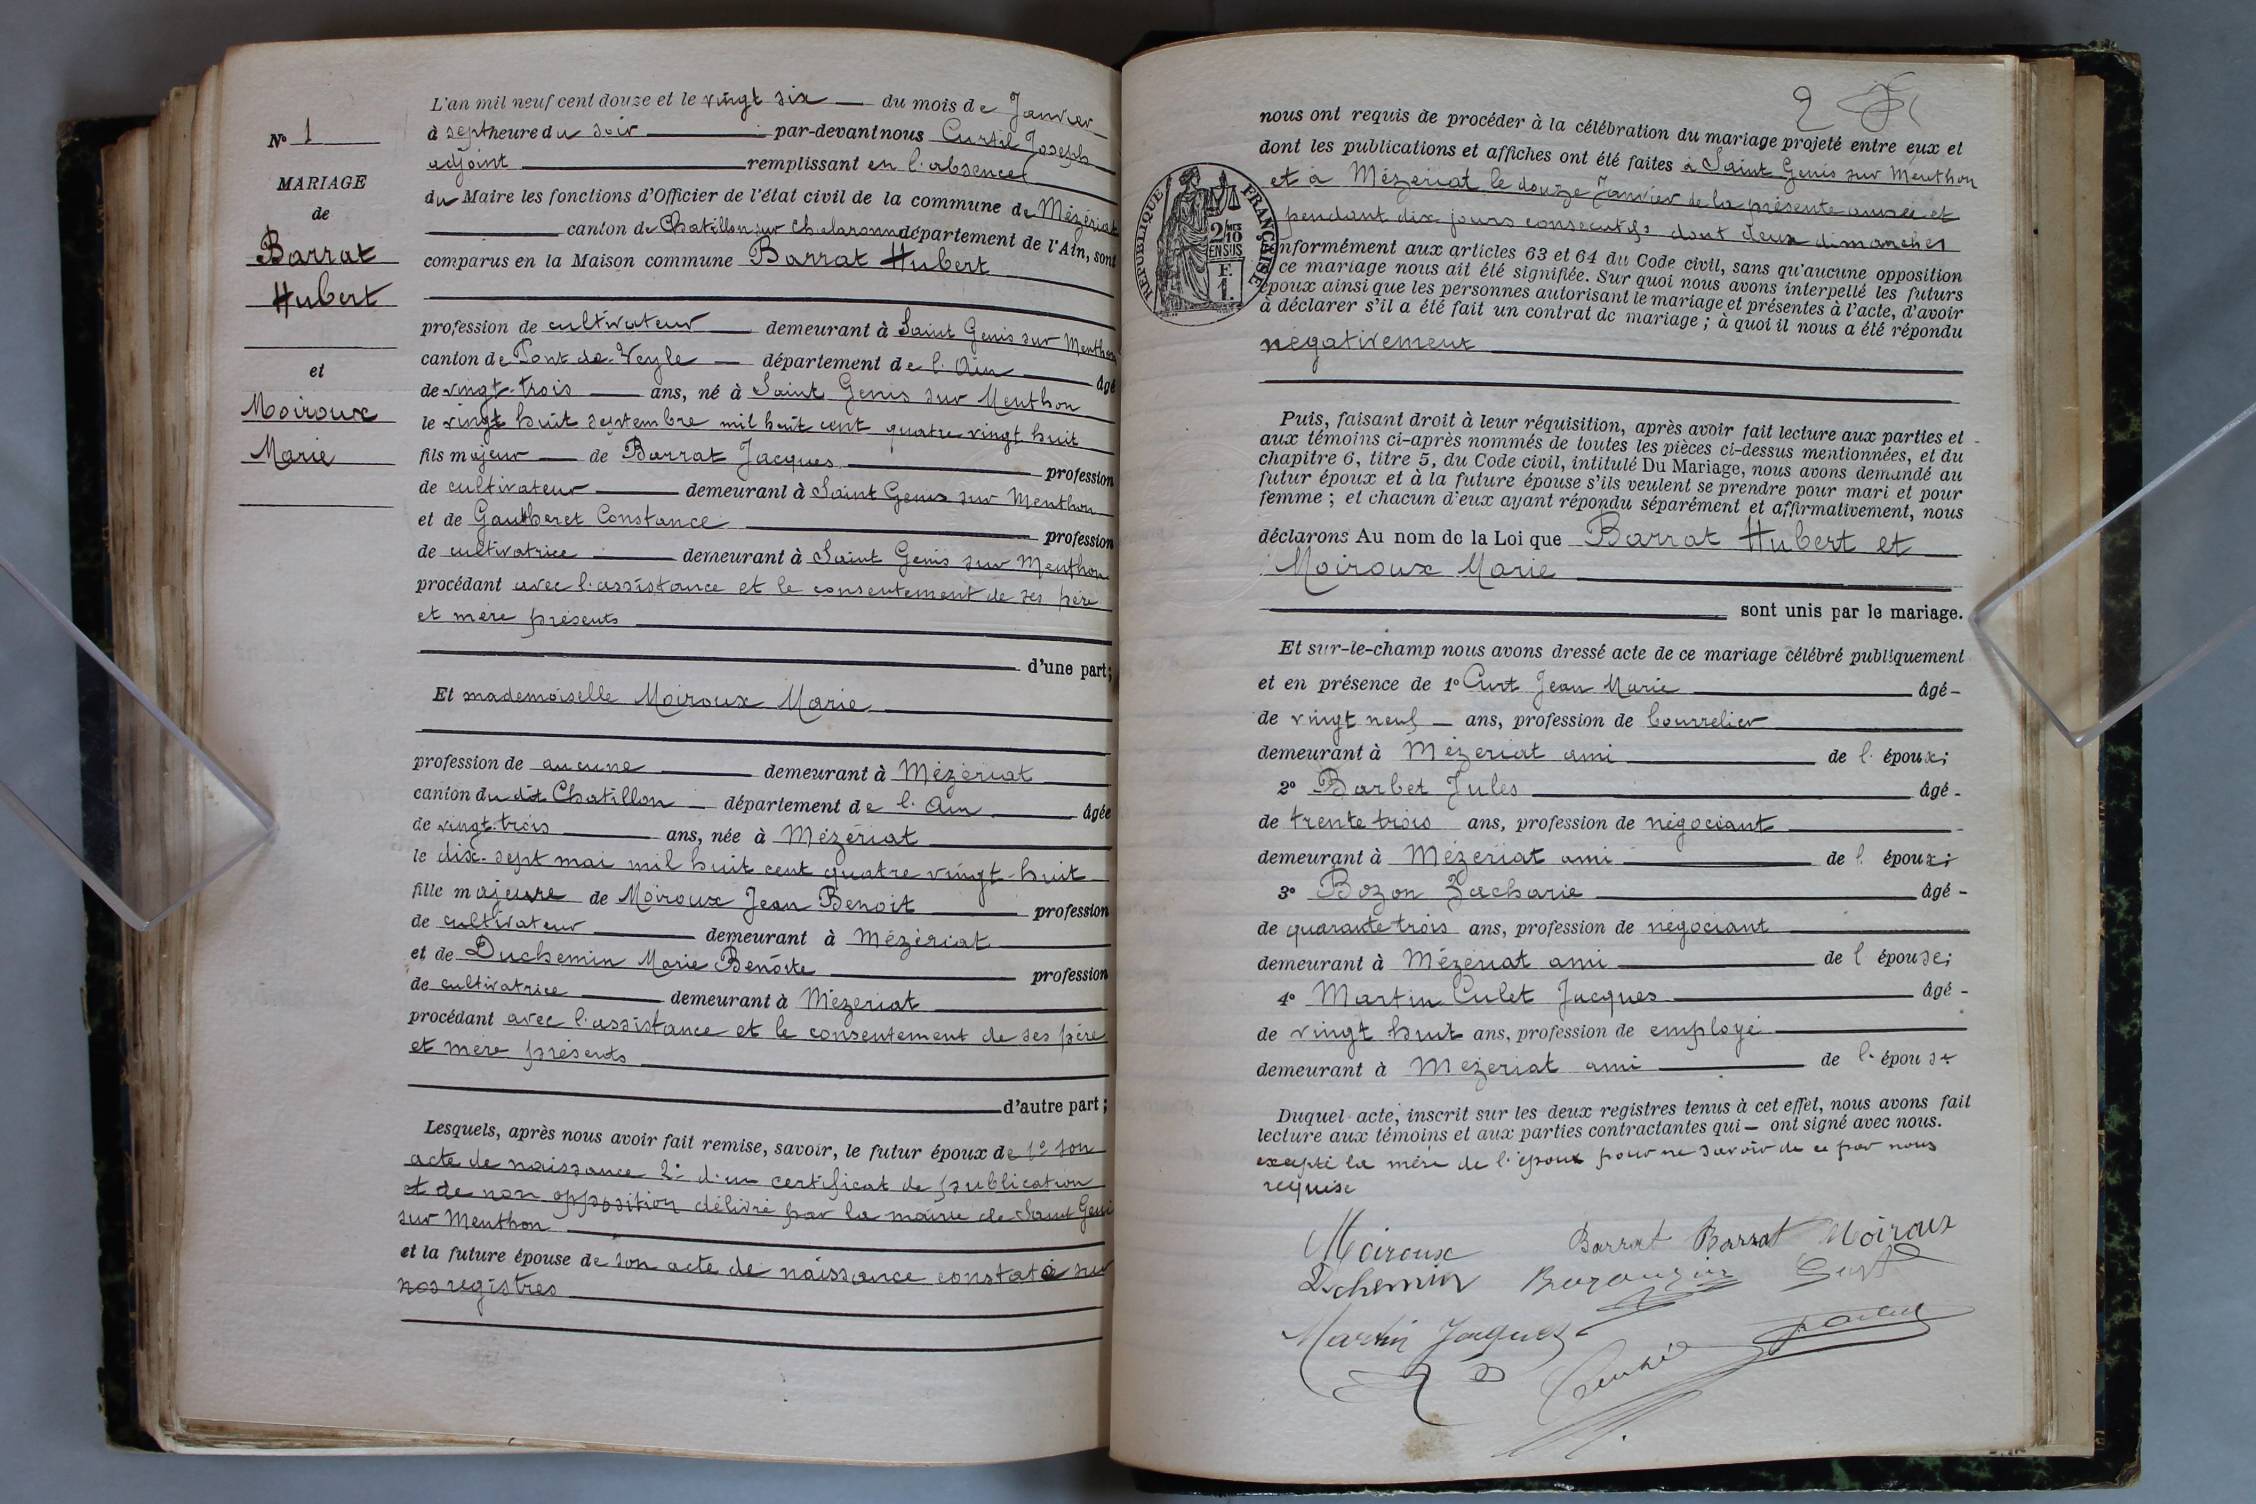 N° 1
MARIAGE
de
Barrat
Hubert
et
Moiroux
Marie
L'an mil neuf cent douze et le vingt six du mois de Janvier
à sept heure du soir par-devant nous Curtil Joseph
adjoint remplissant en l'absence
du Maire les fonctions d'Officier de l'état civil de la commune de Mézériat
canton de Chatillon sur Chalaronne département de l'Ain, sont
comparus en la Maison commune Barrat Hubert
profession de cultivateur demeurant à Saint Genis sur Menthon
canton de Pont-de-Veyle département de l'Ain âgé
de vingt-trois ans, né à Saint Genis sur Menthon
le vingt huit septembre mil huit cent quatre vingt huit
fils majeur de Barrat Jacques profession
de cultivateur demeurant à Saint Genis sur Menthon
et de Gautheret Constance profession
de cultivatrice demeurant à Saint Genis sur Menthon
procédant avec l'assistance et le consentement de ses père
et mère présents
d'une part;
Et mademoiselle Moiroux Marie
profession de aucune demeurant à Mézériat
canton du dit Chatillon département de l'Ain âgée
de vingt-trois ans, née à Mézériat
le dix-sept mai mil huit cent quatre vingt-huit
fille majeure de Moiroux Jean Benoit profession
de cultivateur demeurant à Mézériat
et de Duchemin Marie Benoîte profession
de cultivatrice demeurant à Mézériat
procédant avec l'assistance et le consentement de ses père
et mère présents
d'autre part;
Lesquels, après nous avoir fait remise, savoir, le futur époux de 1° son
acte de naissance 2° d'un certificat de publication
et de non opposition délivré par la mairie de Saint Genis
sur Menthon
et la future épouse de son acte de naissance constaté sur
nos registres
2
nous ont requis de procéder à la célébration du mariage projeté entre eux et
dont les publications et affiches ont été faites à Saint Genis sur Menthon
et à Mézériat le douze Janvier de la présente année et
pendant dix jours consecutifs dont deux dimanches
RÉPUBLIQUE FRANÇAISE
2/10 EN SUS
F.
1.
nformément aux articles 63 et 64 du Code civil, sans qu'aucune opposition
ce mariage nous ait été signifiée. Sur quoi nous avons interpellé les futurs
époux ainsi que les personnes autorisant le mariage et présentes à l'acte, d'avoir
à déclarer s'il a été fait un contrat de mariage; à quoi il nous a été répondu
négativement
Puis, faisant droit à leur réquisition, après avoir fait lecture aux parties et
aux témoins ci-après nommés de toutes les pièces ci-dessus mentionnées, et du
chapitre 6, titre 5, du Code civil, intitulé Du Mariage, nous avons demandé au
futur époux et à la future épouse s'ils veulent se prendre pour mari et pour
femme; et chacun d'eux ayant répondu séparément et affirmativement, nous
déclarons Au nom de la Loi que Barrat Hubert et
Moiroux Marie
sont unis par le mariage.
Et sur-le-champ nous avons dressé acte de ce mariage célébré publiquement
et en présence de 1° Curt Jean Marie âgé
de vingt neuf ans, profession de bourrelier
demeurant à Mézériat ami de l'époux;
2° Barbet Jules âgé
de trente trois ans, profession de négociant
demeurant à Mézériat ami de l'époux;
3° Bozon Zacharie âgé
de quarante trois ans, profession de négociant
demeurant à Mézériat ami de l'épouse;
4° Martin Culet Jacques âgé
de vingt huit ans, profession de employé
demeurant à Mézériat ami de l'épouse
Duquel acte, inscrit sur les deux registres tenus à cet effet, nous avons fait
lecture aux témoins et aux parties contractantes qui ont signé avec nous.
excepté la mère de l'époux pour ne savoir de ce par nous
requise
Moiroux Barrat Barrat Moiroux
Duchemin Curt
Martin Jacques